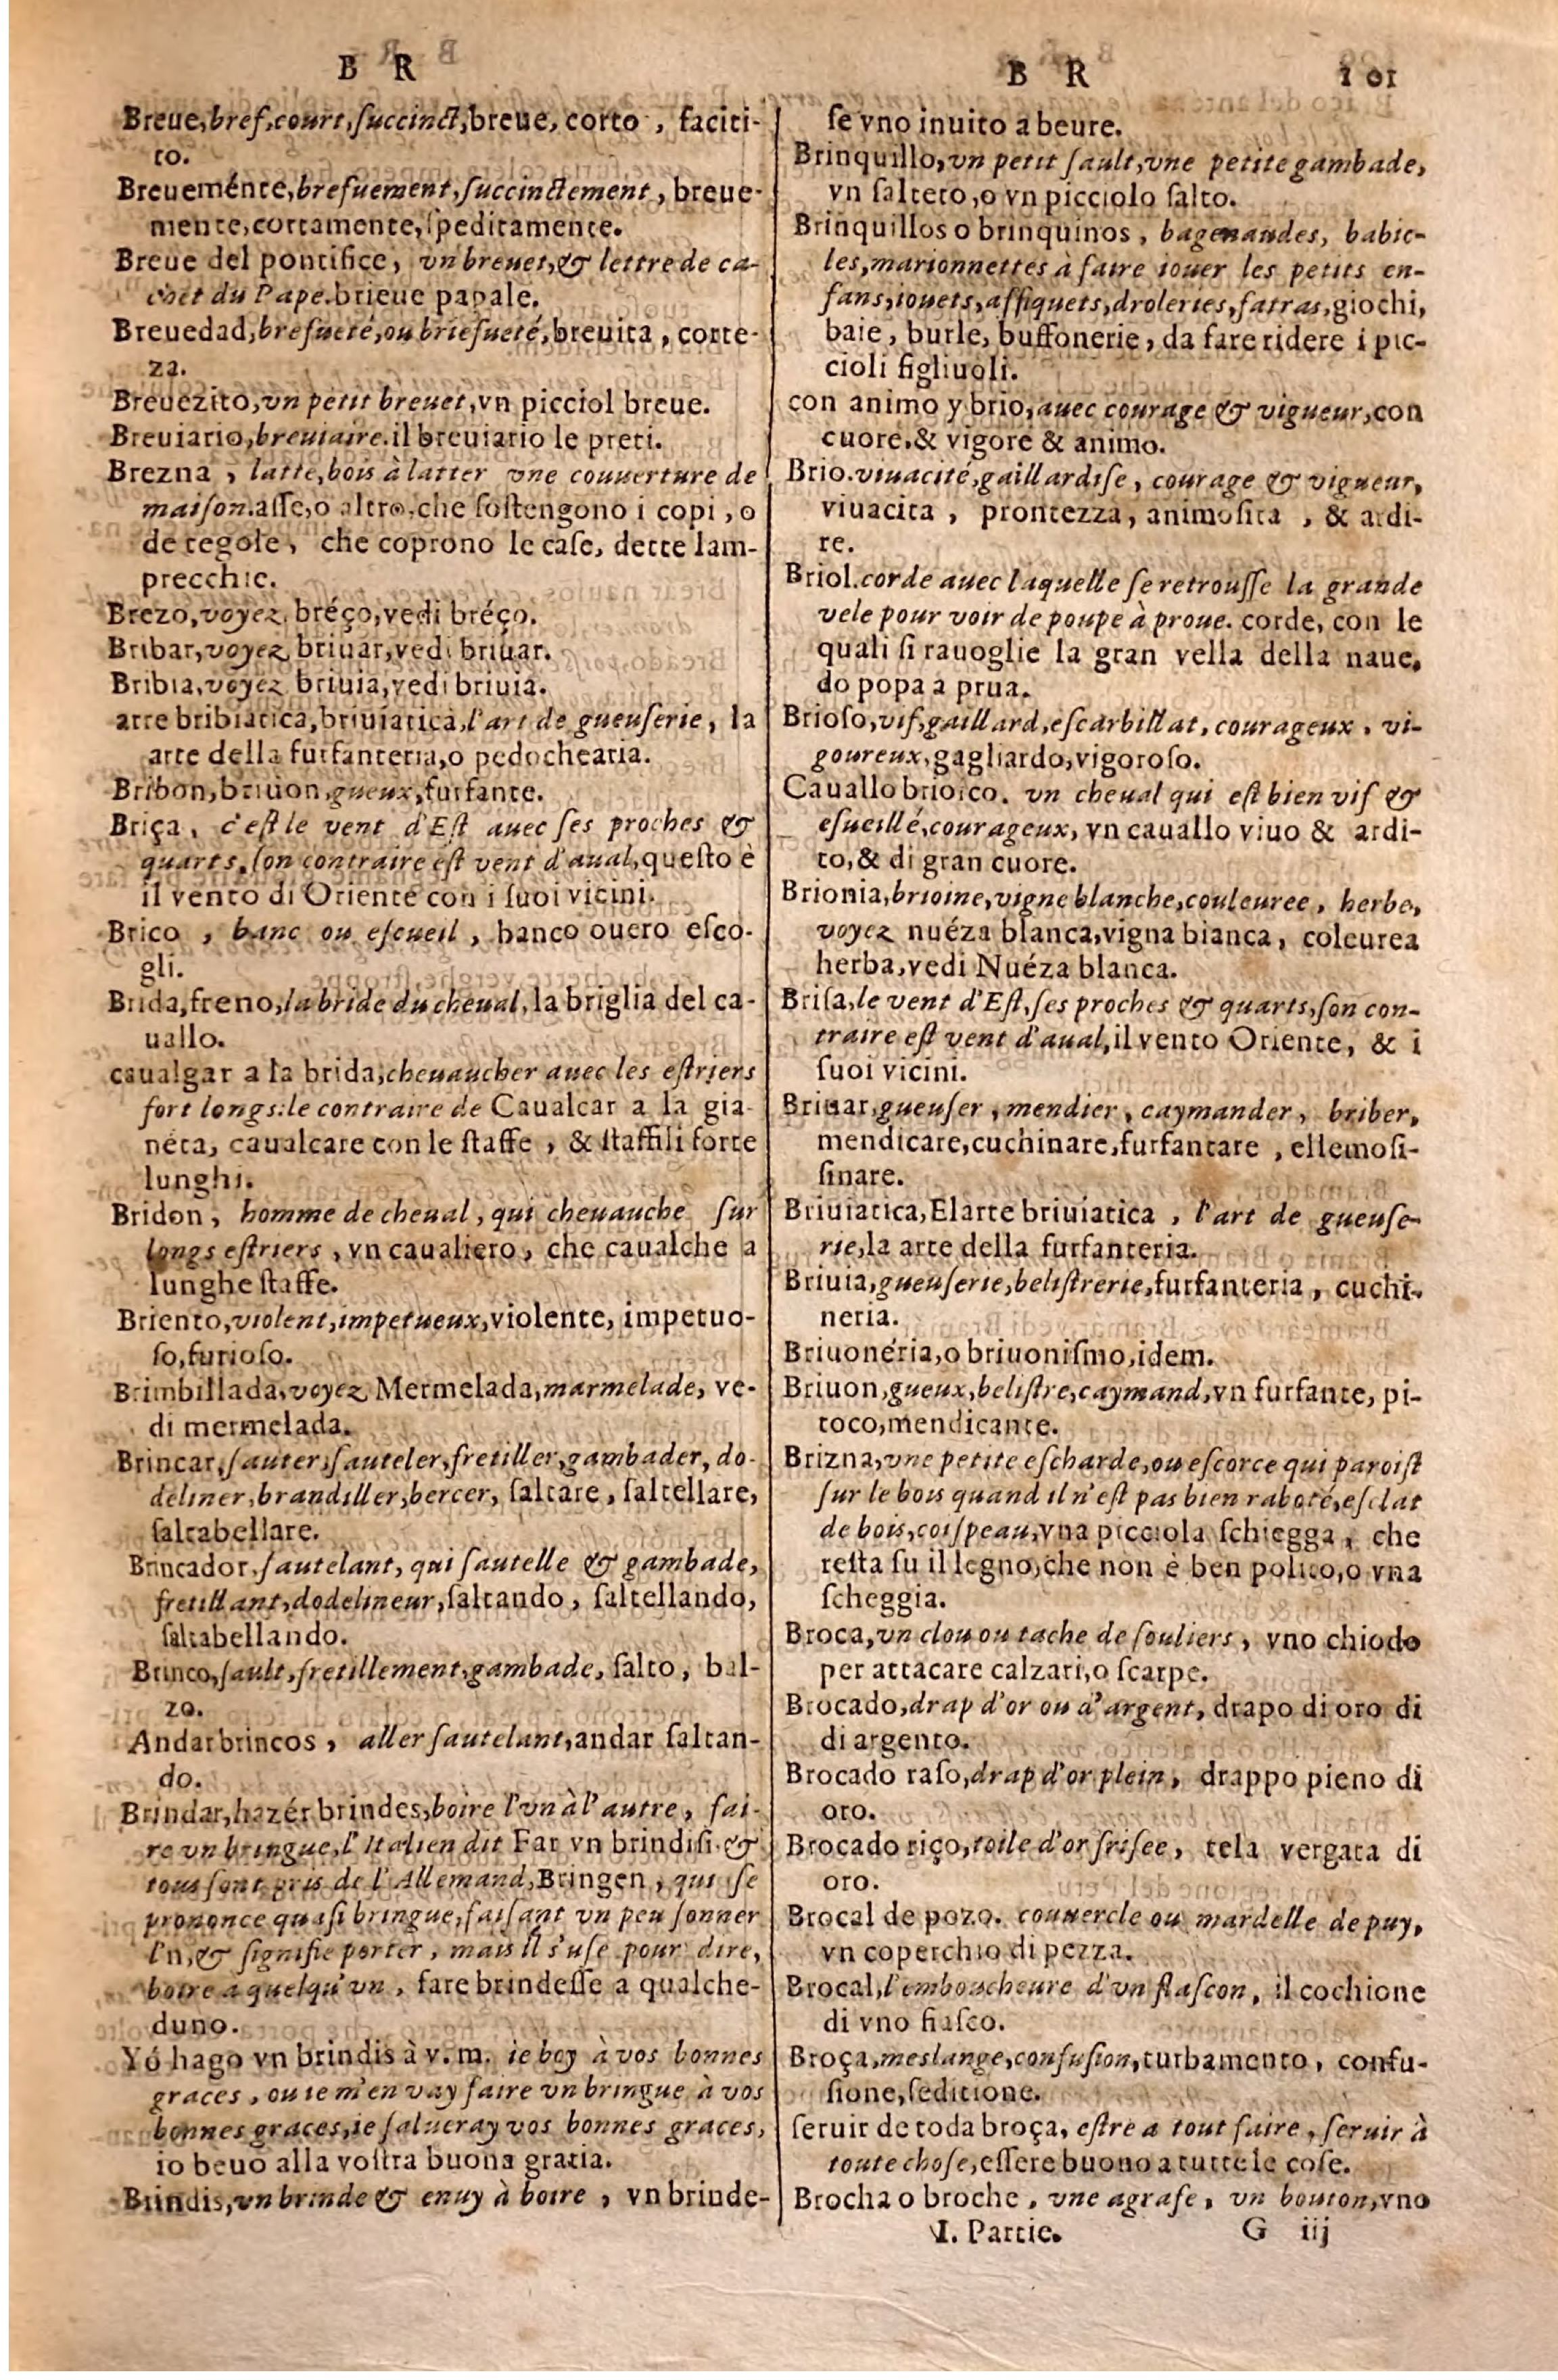 B R
Breue, bref, court, succinct, breue, corto, faciti-
to.
Breueménte, brefuement, succinctement, breue-
mente, cortamente, speditamente.
Breue del pontifice, vn breuet, & lettre de ca-
chet du Pape. brieue papale.
Breuedad, brefueté, ou briefueté, breuita, corte-
za.
Breuezito, vn petit breuet, vn picciol breue.
Breuiario, breuiaire. il breuiario le preti.
Brezna, latte, bois à latter vne couuerture de
maison. asse, o altro, che sostengono i copi, o
de tegole, che coprono le case, dette lam-
precchie.
Brezo, voyez bréço, vedi bréço.
Bribar, voyez briuar, vedi briuar.
Bribia, voyez briuia, vedi briuia.
arte bribiatica, briuiatica, l'art de gueuserie, la
arte della furfanteria, o pedochearia.
Bribon, briuon, gueux, furfante.
Briça, c'est le vent d'Est auec ses proches &
quarts, son contraire est vent d'aual, questo è
il vento di Oriente con i suoi vicini.
Brico, banc ou escueil, banco ouero esco-
gli.
Brida, freno, la bride du cheual, la briglia del ca-
uallo.
caualgar a la brida, cheuaucher auec les estriers
fort longs: le contraire de Caualcar a la gia-
neta, caualcare con le staffe, & staffili forte
lunghi.
Bridon, homme de cheual, qui cheuauche sur
longs estriers, vn caualiero, che caualche a
lunghe staffe.
Briento, violent, impetueux, violente, impetuo-
so, furioso.
Brimbillada, voyez Mermelada, marmelade, ve-
di mermelada.
Brincar, sauter, sauteler, fretiller, gambader, do-
deliner, brandiller, bercer, saltare, saltellare,
saltabellare.
Brincador, sautelant, qui sautelle & gambade,
fretillant, dodelineur, saltando, saltellando,
saltabellando.
Brinco, sault, fretillement, gambade, salto, bal-
zo.
Andar brincos, aller sautelant, andar saltan-
do.
Brindar, hazér brindes, boire l'vn à l'autre, fai-
re vn bringue, l'Italien dit Far vn brindisi. &
tous sont pris de l'Allemand, Bringen, qui se
prononce quasi bringue, faisant vn peu sonner
l'n, & signifie porter, mais il s'vse pour dire,
boire a quelqu'vn, fare brindesse a qualche-
duno.
Yó hago vn brindis à v. m. ie boy à vos bonnes
graces, ou ie m'en vay faire vn bringue à vos
bonnes graces, ie salueray vos bonnes graces,
io beuo alla vostra buona gratia.
Brindis, vn brinde & enuy à boire, vn brinde-
B R 101
se vno inuito a beure.
Brinquillo, vn petit sault, vne petite gambade,
vn salteto, o vn picciolo salto.
Brinquillos o brinquinos, bagenaudes, babio-
les, marionnettes à faire iouer les petits en-
fans, iouets, affiquets, droleries, fatras, giochi,
baie, burle, buffonerie, da fare ridere i pic-
cioli figliuoli.
con animo y brio, auec courage & vigueur, con
cuore, & vigore & animo.
Brio. viuacité, gaillardise, courage & vigueur,
viuacita, prontezza, animosita, & ardi-
re.
Briol. corde auec laquelle se retrousse la grande
vele pour voir de poupe à proue. corde, con le
quali si rauoglie la gran vella della naue,
do popa a prua.
Brioso, vif, gaillard, escarbillat, courageux, vi-
goureux, gagliardo, vigoroso.
Cauallo brioso. vn cheual qui est bien vif &
esueillé, courageux, vn cauallo viuo & ardi-
to, & di gran cuore.
Brionia, brioine, vigne blanche, couleuree, herbe,
voyez nuéza blanca, vigna bianca, coleurea
herba, vedi Nuéza blanca.
Brisa, le vent d'Est, ses proches & quarts, son con-
traire est vent d'aual, il vento Oriente, & i
suoi vicini.
Briuar, gueuser, mendier, caymander, briber,
mendicare, cuchinare, furfantare, ellemosi-
sinare.
Briuiatica, El arte briuiatica, l'art de gueuse-
rie, la arte della furfanteria.
Briuia, gueuserie, belistrerie, furfanteria, cuchi-
neria.
Briuonéria, o briuonismo, idem.
Briuon, gueux, belistre, caymand, vn furfante, pi-
toco, mendicante.
Brizna, vne petite escharde, ou escorce qui paroist
sur le bois quand il n'est pas bien raboté, esclat
de bois, coispeau, vna picciola schiegga, che
resta su il legno, che non è ben polito, o vna
scheggia.
Broca, vn clou ou tache de souliers, vno chiodo
per attacare calzari, o scarpe.
Brocado, drap d'or ou d'argent, drapo di oro di
di argento.
Brocado raso, drap d'or plein, drappo pieno di
oro.
Brocado riço, toile d'or frisee, tela vergata di
oro.
Brocal de pozo. couuercle ou mardelle de puy,
vn coperchio di pezza.
Brocal, l'emboucheure d'vn flascon, il cochione
di vno fiasco.
Broça, meslange, confusion, turbamento, confu-
sione, seditione.
seruir de toda broça, estre a tout faire, seruir à
toute chose, essere buono a tutte le cose.
Brocha o broche, vne agrafe, vn bouton, vno
I. Partie. G iij